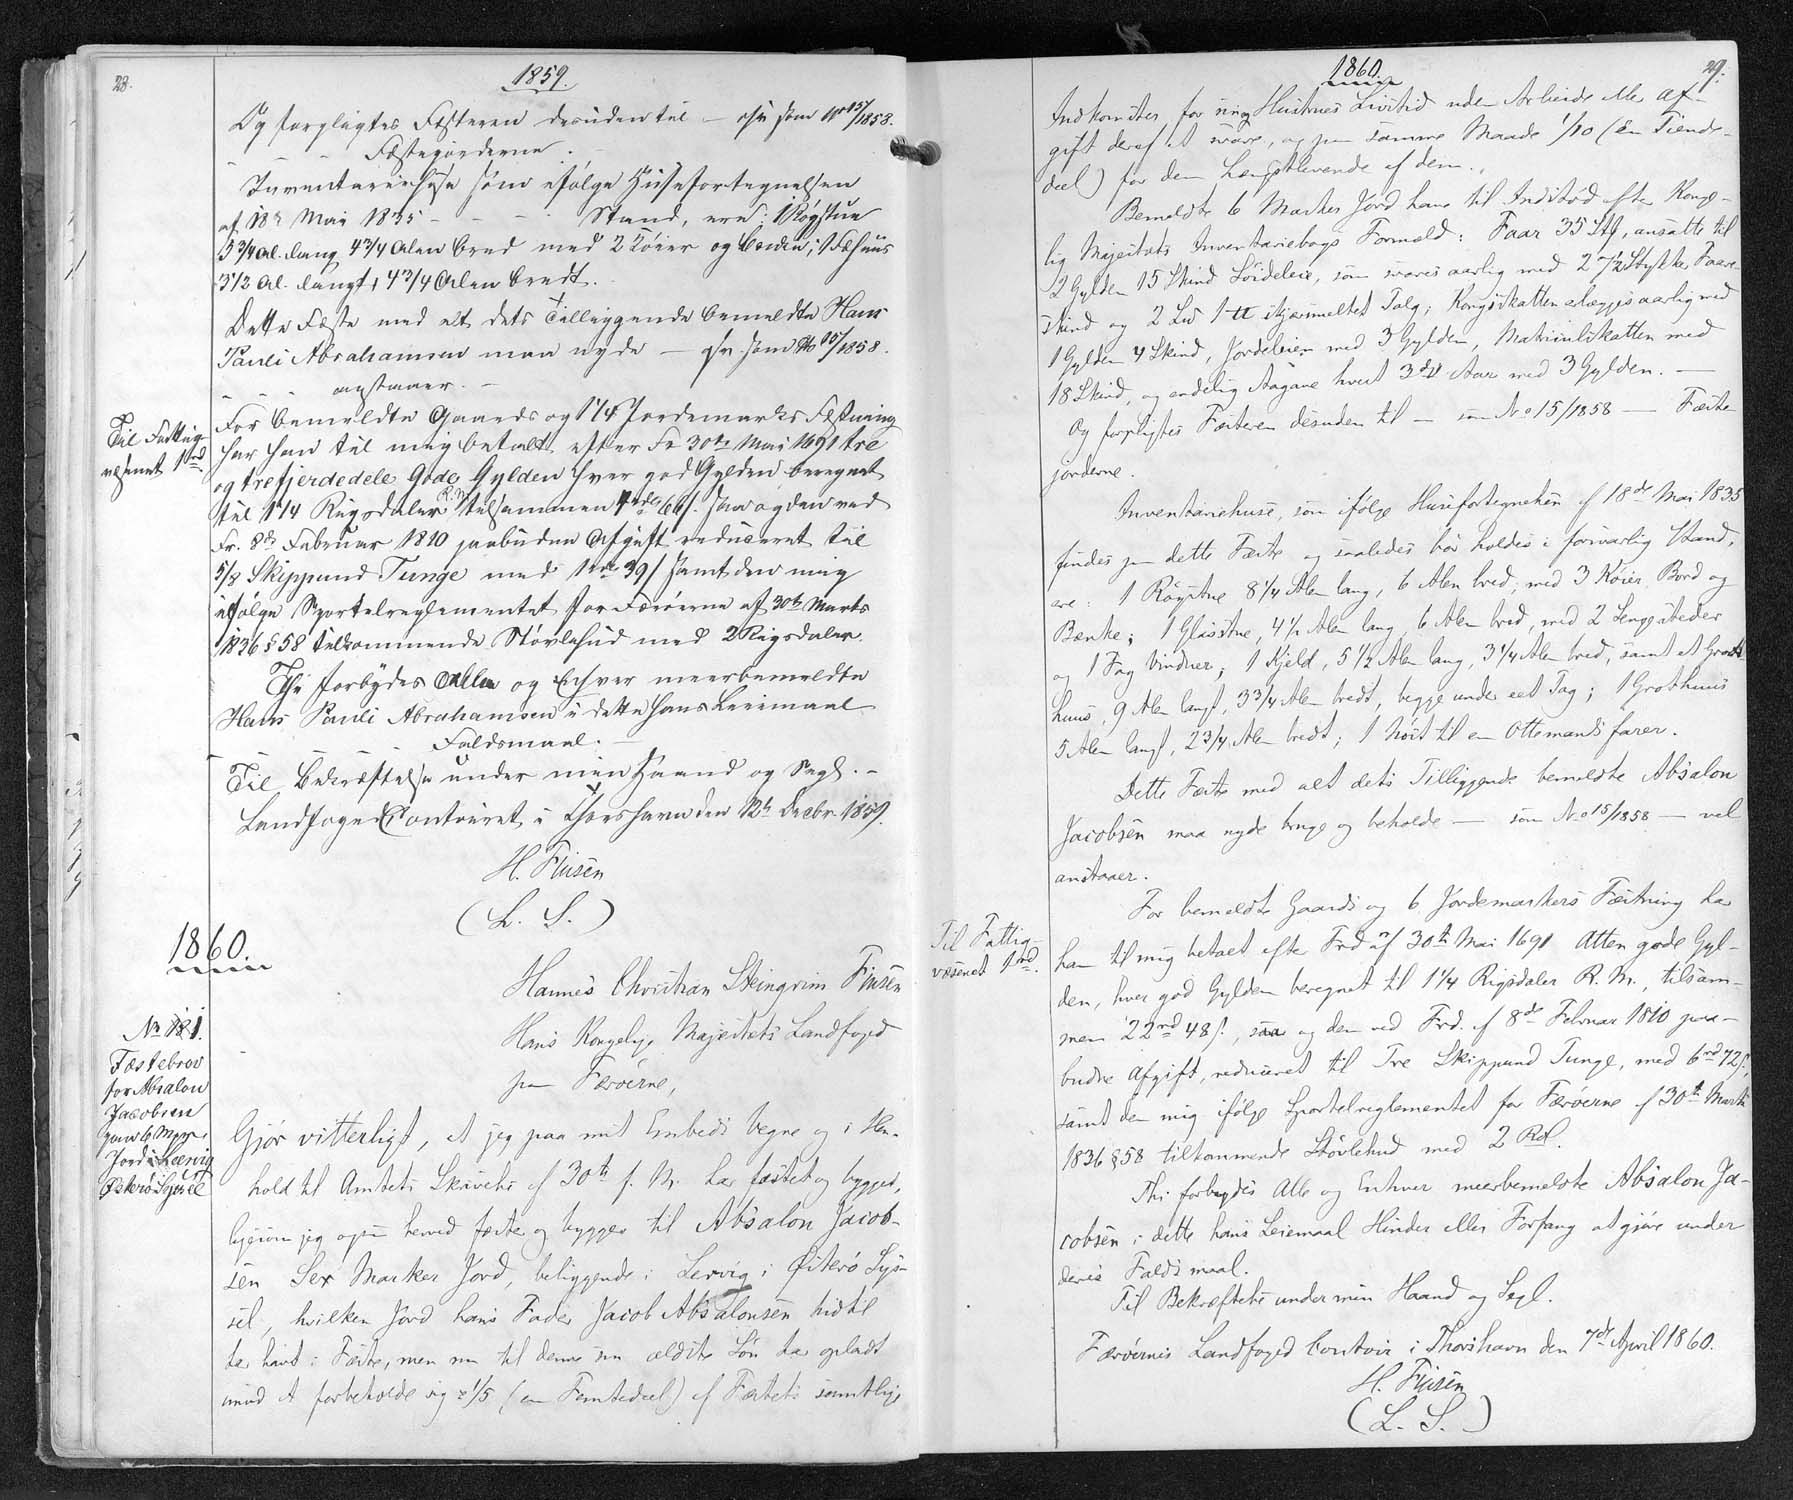 28.
1859.
Og forpligtes Fæsteren desuden til — osv som No 15/1858.
- - - Fæstejorderne.
Inventariehuse som ifølge Huusefortegnelsen
af 18de Mai 1835 - - - - Stand, ere: 1 Røgstue
5 3/4 Al. lang 4 3/4 Alen bred med 2 Køier og Bænke; 1 Fæhuus
3 1/2 Al. langt, 4 3/4 Alen bredt.
Dette Fæste med alt dets Tilliggende bemeldte Hans
Pauli Abrahamsen maa nyde — osv. som No 15/1858.
- - - anstaaer. -
Til Fattig-
væsenet 1rd
For bemeldte Gaards og 1 1/4 Jordemarks Fæstning
har han til mig betalt efter Fr. 30te Mai 1691 tre
og trefjerdedele Gode Gylden hver god Gylden beregnet
til 1 1/4 Rigsdaler R.M. tilsammen 4 rd 66 s. saa og den ved
Fr. 8de Februar 1810 paabudne Afgift reduceret til
5/8 Skippund Tunge med 1 rd 39 s samt den mig
ifølge Sportelreglementet for Færøerne af 30te Marts
1836 § 58 tilkommende Støvlehud med 2 Rigsdaler.
Thi forbydes Alle og Enhver meerbemeldte
Hans Pauli Abrahamsen i dette hans Leiemaal
- - - Faldsmaal. —
Til Bekræftelse under min Haand og Segl. -
Landfoged Contoiret i Thorshavn den 12te Decbr. 1859.
H. Finsen
(L. S.)
1860.
Hannes Christian Steingrim Finsen
Hans Kongelige Majestets Landfoged
paa Færøerne,
No 181.
Fæstebrev
for Absalon
Jacobsen
paa 6 Mark
Jord i Lervig
i
Østerø Syssel
Gjør vitterligt, at jeg paa mit Embeds Vegne og i Hen-
hold til Amtets Skrivelse af 30te f. M. har fæstet og bygget,
ligesom jeg ogsaa herved fæster og bygger til Absalon Jacob-
sen Sex Marker Jord, beliggende i Lervig i Østerø Sys-
sel, hvilken Jord hans Fader Jacob Absalonsen hidtil
har havt i Fæste, men nu til denne sin ældste Søn har opladt
imod at forbeholde sig 1/5 (en Femtedeel) af Fæstets samtlige
1860.
29.
Indkomster for sin og Hustrues Livstid uden Arbeide eller Af-
gift deraf at svare, og paa samme Maade 1/10 (een Tiende-
deel) for den Længstlevende af dem.
Bemeldte 6 Marker Jord have til Indstød efter Konge-
lig Majestæts Inventariebogs Formeld: Faar 35 Stk, ansatte til
2 Gylden 15 Skind Søideleie, som svares aarlig med 2 7/12 Stykker Faare-
skind og 2 Lod 1 ℔ skjærsmeltet Talg; Kongsskatten erlægges aarlig med
1 Gylden 4 Skind, Jordeleien med 3 Gylden, Matriculskatten med
18 Skind, og endelig Aagave hvert 3die Aar med 3 Gylden. —
Og forpligtes Fæsteren desuden til — som No 15/1858 — Fæste
jorderne.
Inventariehuse, som ifølge Husefortegnelsen af 18de Mai 1835
findes paa dette Fæste og saaledes bør holdes i forsvarlig Stand,
ere: 1 Røgstue 8 1/4 Alen lang, 6 Alen bred, med 3 Køier, Bord og
Bænke; 1 Glasstue, 4 1/2 Alen lang, 6 Alen bred, med 2 Sengesteder
og 1 Fag Vinduer; 1 Kjeld, 5 1/2 Alen lang, 3 1/4 Alen bred, samt et Grot
huus, 9 Alen langt, 3 3/4 Alen bredt, begge under eet Tag; 1 Grothuus
5 Alen langt, 2 3/4 Alen bredt; 1 Nøst til en Ottemandsfarer.
Dette Fæste med alt dets Tilliggende bemeldte Absalon
Jacobsen maa nyde bruge og beholde — som No 15/1858 — vel
anstaaer.
Til Fattig-
væsenet 1 rd.
For bemeldte Gaards og 6 Jordemarkers Fæstning har
han til mig betalt efter Frd. af 30te Mai 1691 Atten gode Gyl-
den, hver god Gylden beregnet til 1 1/4 Rigsdaler R. M., tilsam-
men 22 rd 48 s., saa og den ved Frd. af 8de Februar 1810 paa-
budne Afgift, reduceret til Tre Skippund Tunge, med 6 rd 72 s,
samt den mig ifølge Sportelreglementet for Færøerne af 30te Marts
1836 § 58 tilkommende Støvlehud med 2 Rd.
Thi forbydes Alle og Enhver meerbemeldte Absalon Ja-
cobsen i dette hans Leiemaal Hinder eller Forfang at gjøre under
deres Faldsmaal.
Til Bekræftelse under min Haand og Segl.
Færøernes Landfoged Contoir i Thorshavn den 7de April 1860.
H. Finsen
(L. S.)